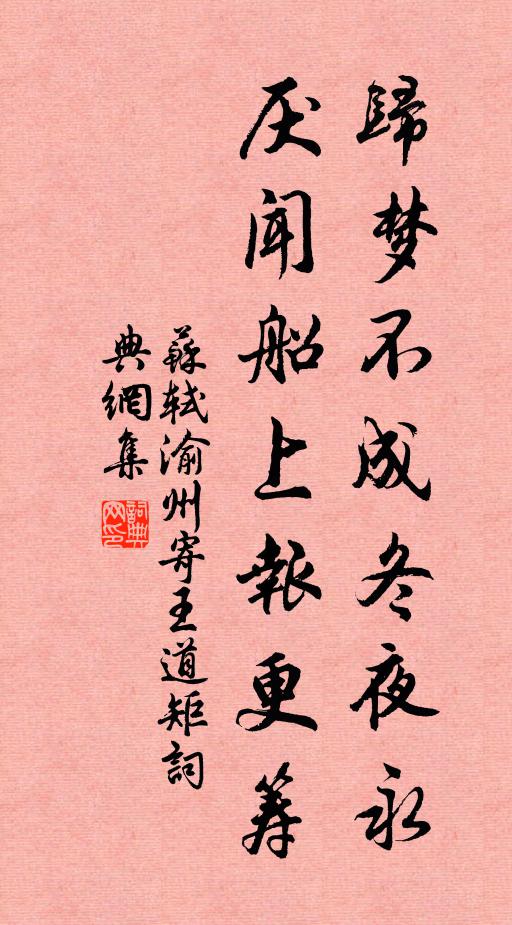 歸梦不成冬夜永
厌闻船上報更筹
蘇轼渝州寄王道矩詞
典網集
詞典
网印